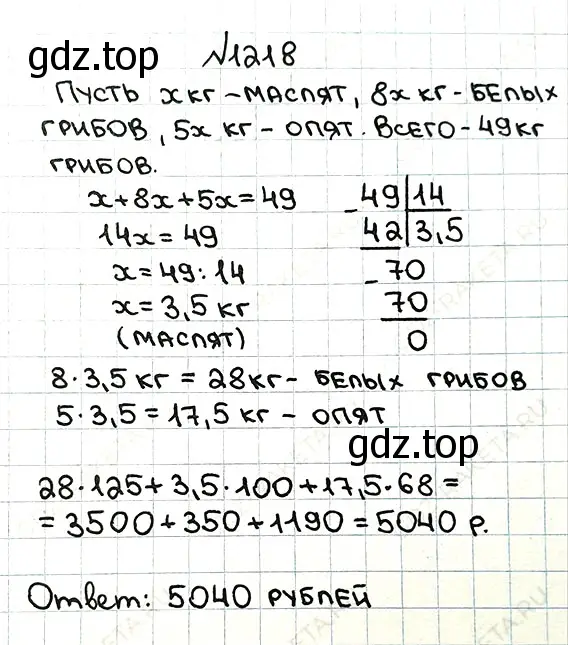 gdz.top
№1218
Пусть x кг - маслят, 8x кг - белых
грибов, 5x кг - опят. Всего - 49 кг
грибов.
x+8x+5x=49
14x=49
x=49:14
x=3,5 кг
(маслят)
- 49 | 14
42 | 3,5
- 70
70
0
8·3,5 кг = 28 кг - белых грибов
5·3,5 = 17,5 кг - опят
gdz.top
28·125+3,5·100+17,5·68=
=3500+350+1190=5040 р.
Ответ: 5040 рублей